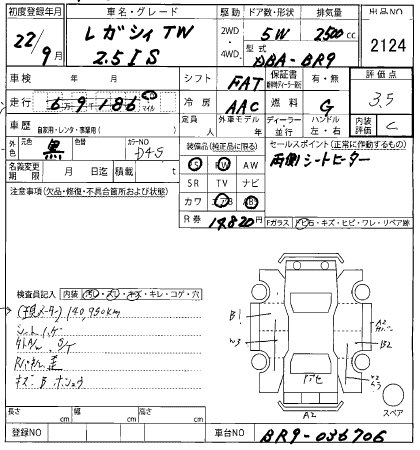 初度登録年月 車名・グレード 駆動 ドア数・形状 排気量 出品NO
22/9月 レガシィTW 2.5IS 2WD・4WD 5W 2500cc 2124
型式 DBA-BR9
車検 年 月 シフト FAT 保証書 有・無 評価点 3.5
走行 6万9186 マイル 冷房 AAC 燃料 G
車歴 自家用・レンタ・事業用( ) 定員 人 外車モデル 年 ディーラー・並行 ハンドル 左・右 内装評価 C
外色 元色 黒 色替 カラーNO D4S 装備品(純正品に限る) セールスポイント(正常に作動するもの)
PS PW AW 両側シートヒーター
名義変更期限 月 日迄 積載 t SR TV ナビ
注意事項(欠品・修復・不具合箇所および状態) カワ エアB AB
R券 14,820 Fガラス トビ石・キズ・ヒビ・ワレ・リペア跡
検査員記入 内装 汚レ・スリ・キズ・キレ・コゲ・穴
(現メーター)140,950km
シートハゲ
Rパネル歪
キズ B ホシュウ
B1 W3 A2 B2 A2
スペア
長さ cm 幅 cm 高さ cm
登録NO 車台NO BR9-036706